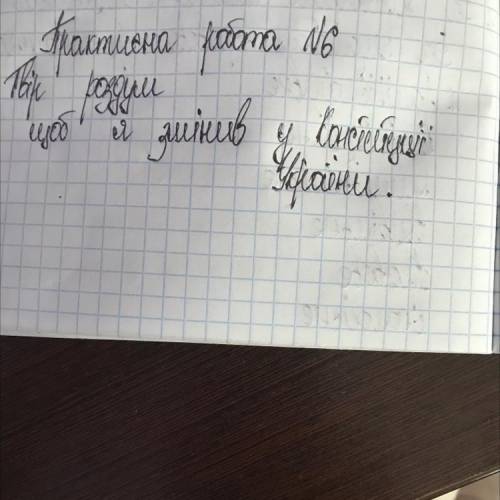 Практична работа №6
Твір роздум
щоб я змінив у Конституції
України.